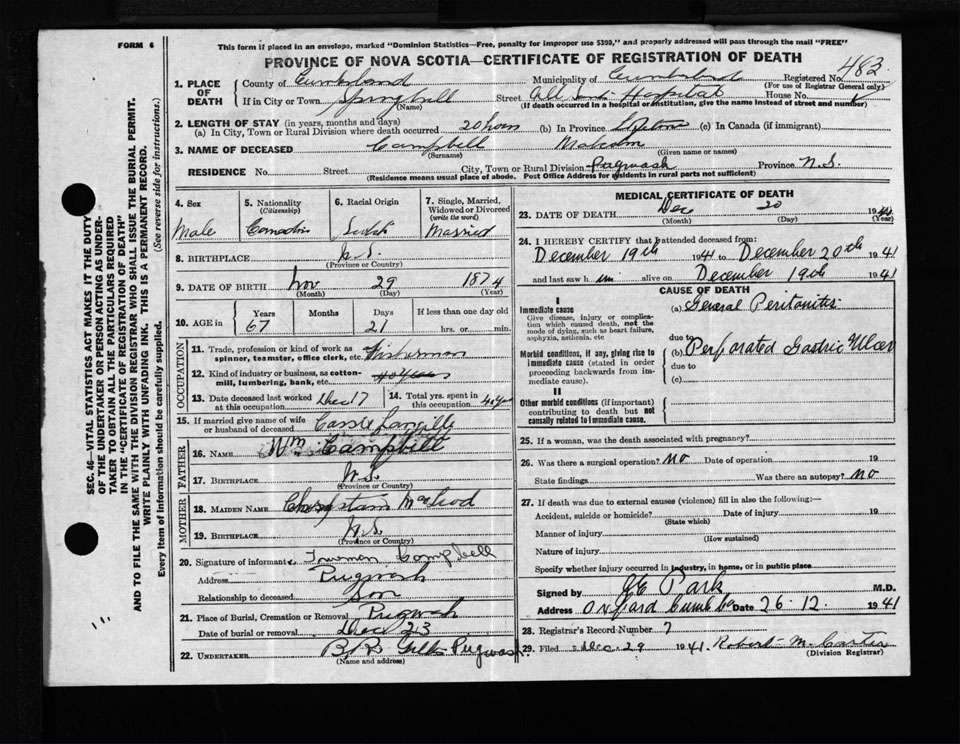 FORM 6
This form if placed in an envelope, marked "Dominion Statistics—Free, penalty for improper use $300," and properly addressed will pass through the mail "FREE"
PROVINCE OF NOVA SCOTIA—CERTIFICATE OF REGISTRATION OF DEATH
1. PLACE OF DEATH
County of Cumberland Municipality of Cumberland Registered No. 483
(For use of Registrar General only)
If in City or Town Springhill Street All Saints Hospital House No.
(Name) (If death occurred in a hospital or institution, give the name instead of street and number)
2. LENGTH OF STAY (in years, months and days)
(a) In City, Town or Rural Division where death occurred 20 hours (b) In Province Lifetime (c) In Canada (if immigrant)
3. NAME OF DECEASED Campbell Malcolm
(Surname) (Given name or names)
RESIDENCE No. Street City, Town or Rural Division Pugwash Province N.S.
(Residence means usual place of abode. Post Office Address for residents in rural parts not sufficient)
4. Sex
Male
5. Nationality (Citizenship)
Canadian
6. Racial Origin
7. Single, Married, Widowed or Divorced (write the word)
Married
8. BIRTHPLACE N.S.
(Province or Country)
9. DATE OF BIRTH Nov 29 1874
(Month) (Day) (Year)
10. AGE in Years Months Days If less than one day old
67 21 hrs. or min.
OCCUPATION
11. Trade, profession or kind of work as spinner, teamster, office clerk, etc. Fisherman
12. Kind of industry or business, as cotton-mill, lumbering, bank, etc.
13. Date deceased last worked at this occupation Dec 17
14. Total yrs. spent in this occupation 40 yrs
15. If married give name of wife or husband of deceased Langille
FATHER
16. NAME Wm Campbell
17. BIRTHPLACE N.S.
(Province or Country)
MOTHER
18. MAIDEN NAME MacLeod
19. BIRTHPLACE N.S.
(Province or Country)
20. Signature of informant Truman Campbell
Address Pugwash
Relationship to deceased Son
21. Place of Burial, Cremation or Removal Pugwash
Date of burial or removal Dec 23
22. UNDERTAKER Pugwash
(Name and address)
MEDICAL CERTIFICATE OF DEATH
23. DATE OF DEATH Dec 20 1941
(Month) (Day) (Year)
24. I HEREBY CERTIFY that I attended deceased from:
December 19th 1941 to December 20th 1941
and last saw him alive on December 19th 1941
CAUSE OF DEATH
I
Immediate cause
Give disease, injury or complication which caused death, not the mode of dying, such as heart failure, asphyxia, asthenia, etc
(a) General Peritonitis
due to
Morbid conditions, if any, giving rise to immediate cause (stated in order proceeding backwards from immediate cause).
(b) Perforated Gastric Ulcer
due to
(c)
II
Other morbid conditions (if important) contributing to death but not causally related to immediate cause.
25. If a woman, was the death associated with pregnancy?
26. Was there a surgical operation? No Date of operation 19
State findings Was there an autopsy? No
27. If death was due to external causes (violence) fill in also the following:—
Accident, suicide or homicide? Date of injury 19
(State which)
Manner of injury
(How sustained)
Nature of injury
Specify whether injury occurred in industry, in home, or in public place
Signed by Park M.D.
Address Oxford Cumb Co Date 26.12. 1941
28. Registrar's Record Number 7
29. Filed Dec. 29 1941. Robert M. Carter
(Division Registrar)
SEC. 46—VITAL STATISTICS ACT MAKES IT THE DUTY
OF THE UNDERTAKER OR PERSON ACTING AS UNDER-
TAKER TO OBTAIN ALL THE PARTICULARS REQUIRED
IN THE "CERTIFICATE OF REGISTRATION OF DEATH"
AND TO FILE THE SAME WITH THE DIVISION REGISTRAR WHO SHALL ISSUE THE BURIAL PERMIT.
WRITE PLAINLY WITH UNFADING INK. THIS IS A PERMANENT RECORD.
Every item of information should be carefully supplied. (See reverse side for instructions.)